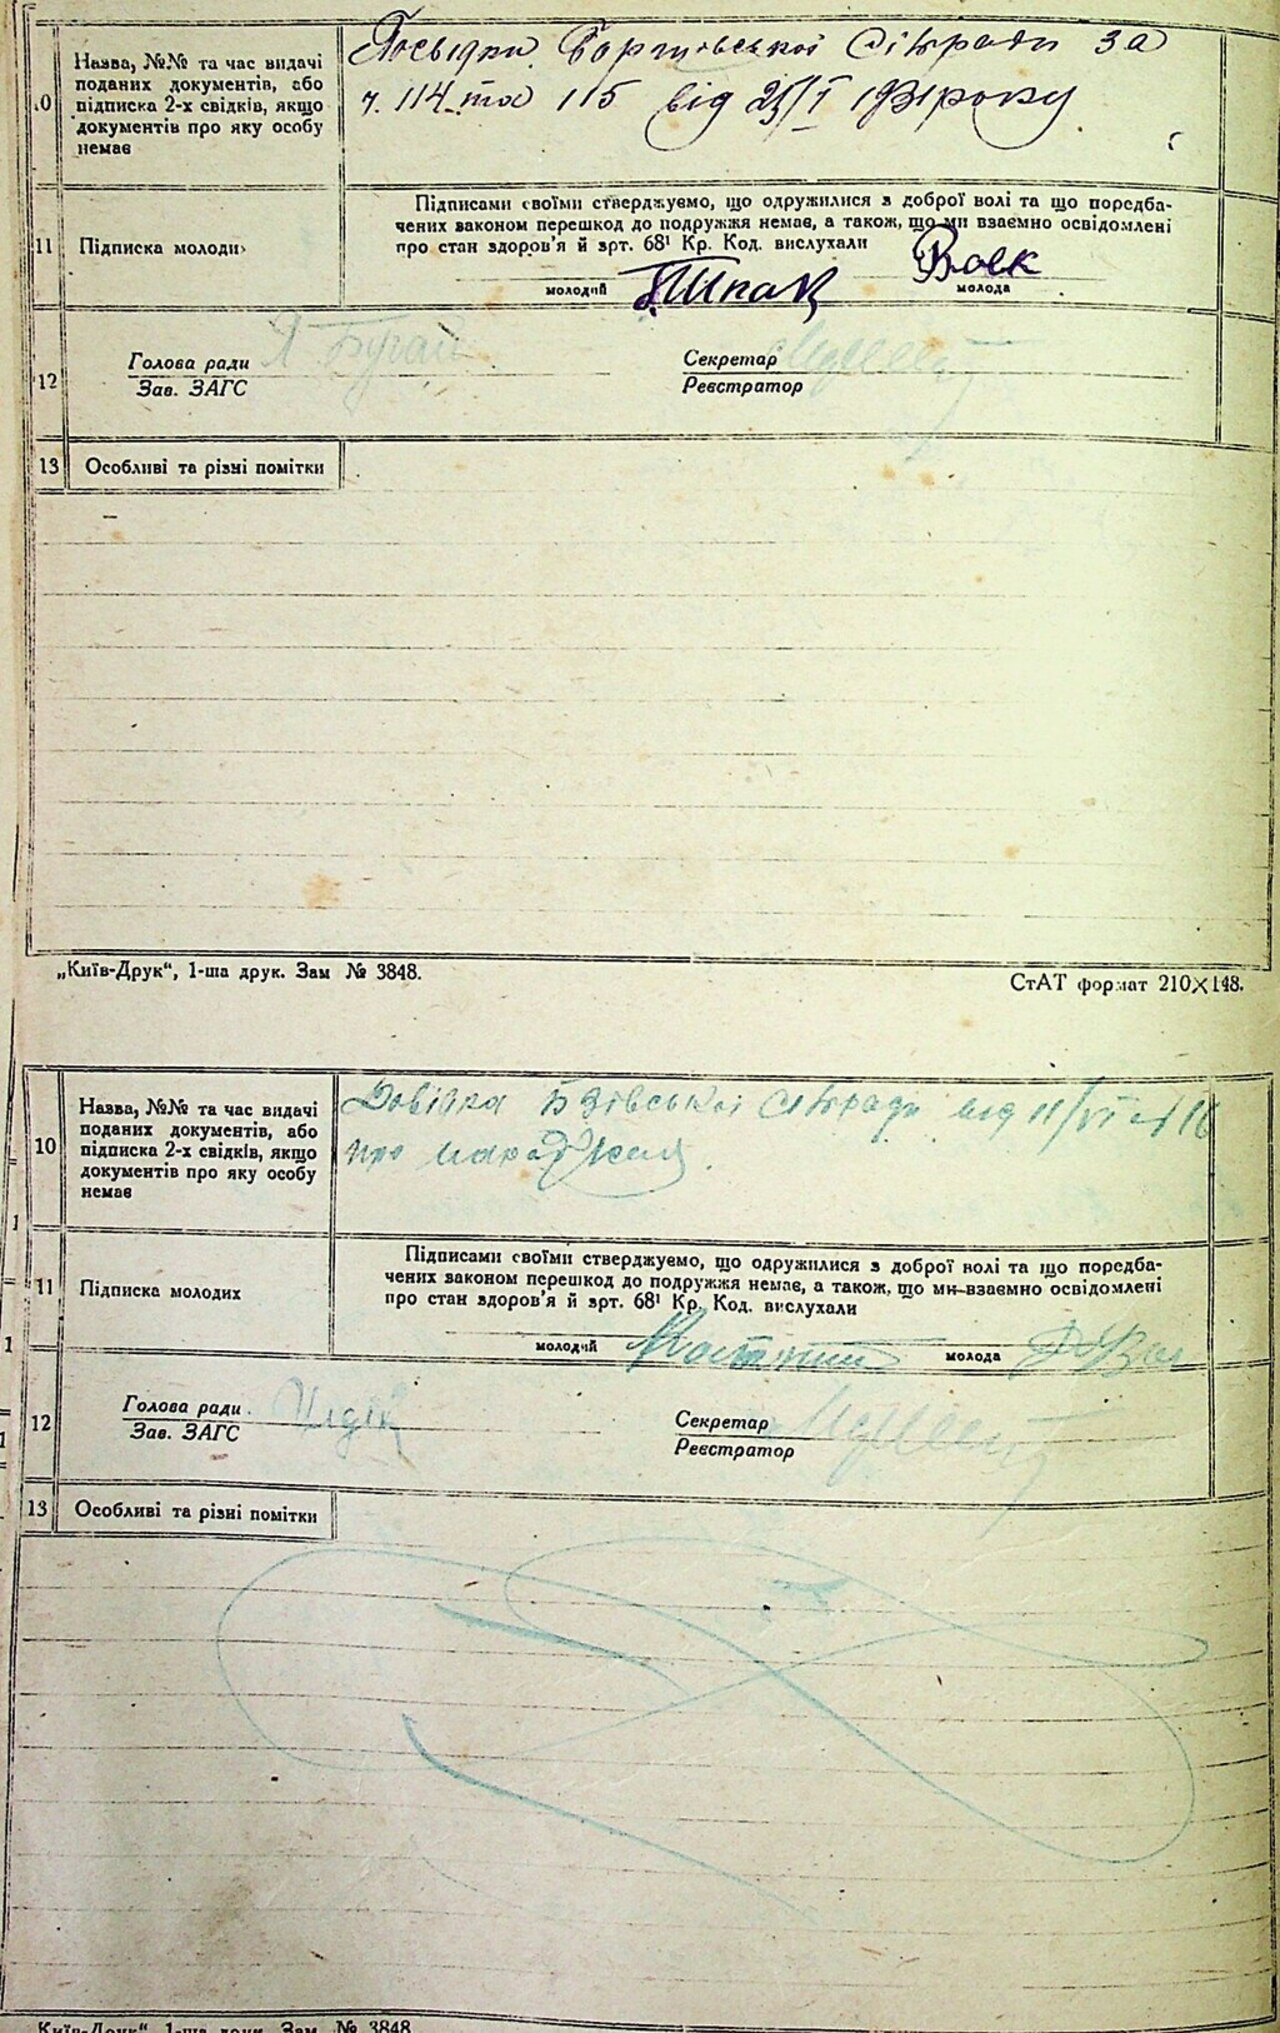 .0
Назва, №№ та час видачі
поданих документів, або
підписка 2-х свідків, якщо
документів про яку особу
немає
Посвідки Борщівської сільради за
ч. 114 та 115 від 25/I 1931 року
11
Підписка молоди
Підписами своїми стверджуємо, що одружилися з доброї волі та що поредба-
чених законом перешкод до подружжя немає, а також, що ми взаємно освідомлені
про стан здоров'я й зрт. 68¹ Кр. Код. вислухали
молодий Шпак
молода Вовк
12
Голова ради Я Бугай
Зав. ЗАГС
Секретар
Реєстратор
13
Особливі та різні помітки
„Київ-Друк“, 1-ша друк. Зам № 3848.
СтАТ формат 210×148.
10
Назва, №№ та час видачі
поданих документів, або
підписка 2-х свідків, якщо
документів про яку особу
немає
Довідка Бзівської сільради від 11/VI
про народження.
11
Підписка молодих
Підписами своїми стверджуємо, що одружилися з доброї волі та що поредба-
чених законом перешкод до подружжя немає, а також, що ми взаємно освідомлені
про стан здоров'я й зрт. 68¹ Кр. Код. вислухали
молодий
молода
12
Голова ради
Зав. ЗАГС
Секретар
Реєстратор
13
Особливі та різні помітки
Київ-Друк“, 1-ша друк. Зам. № 3848